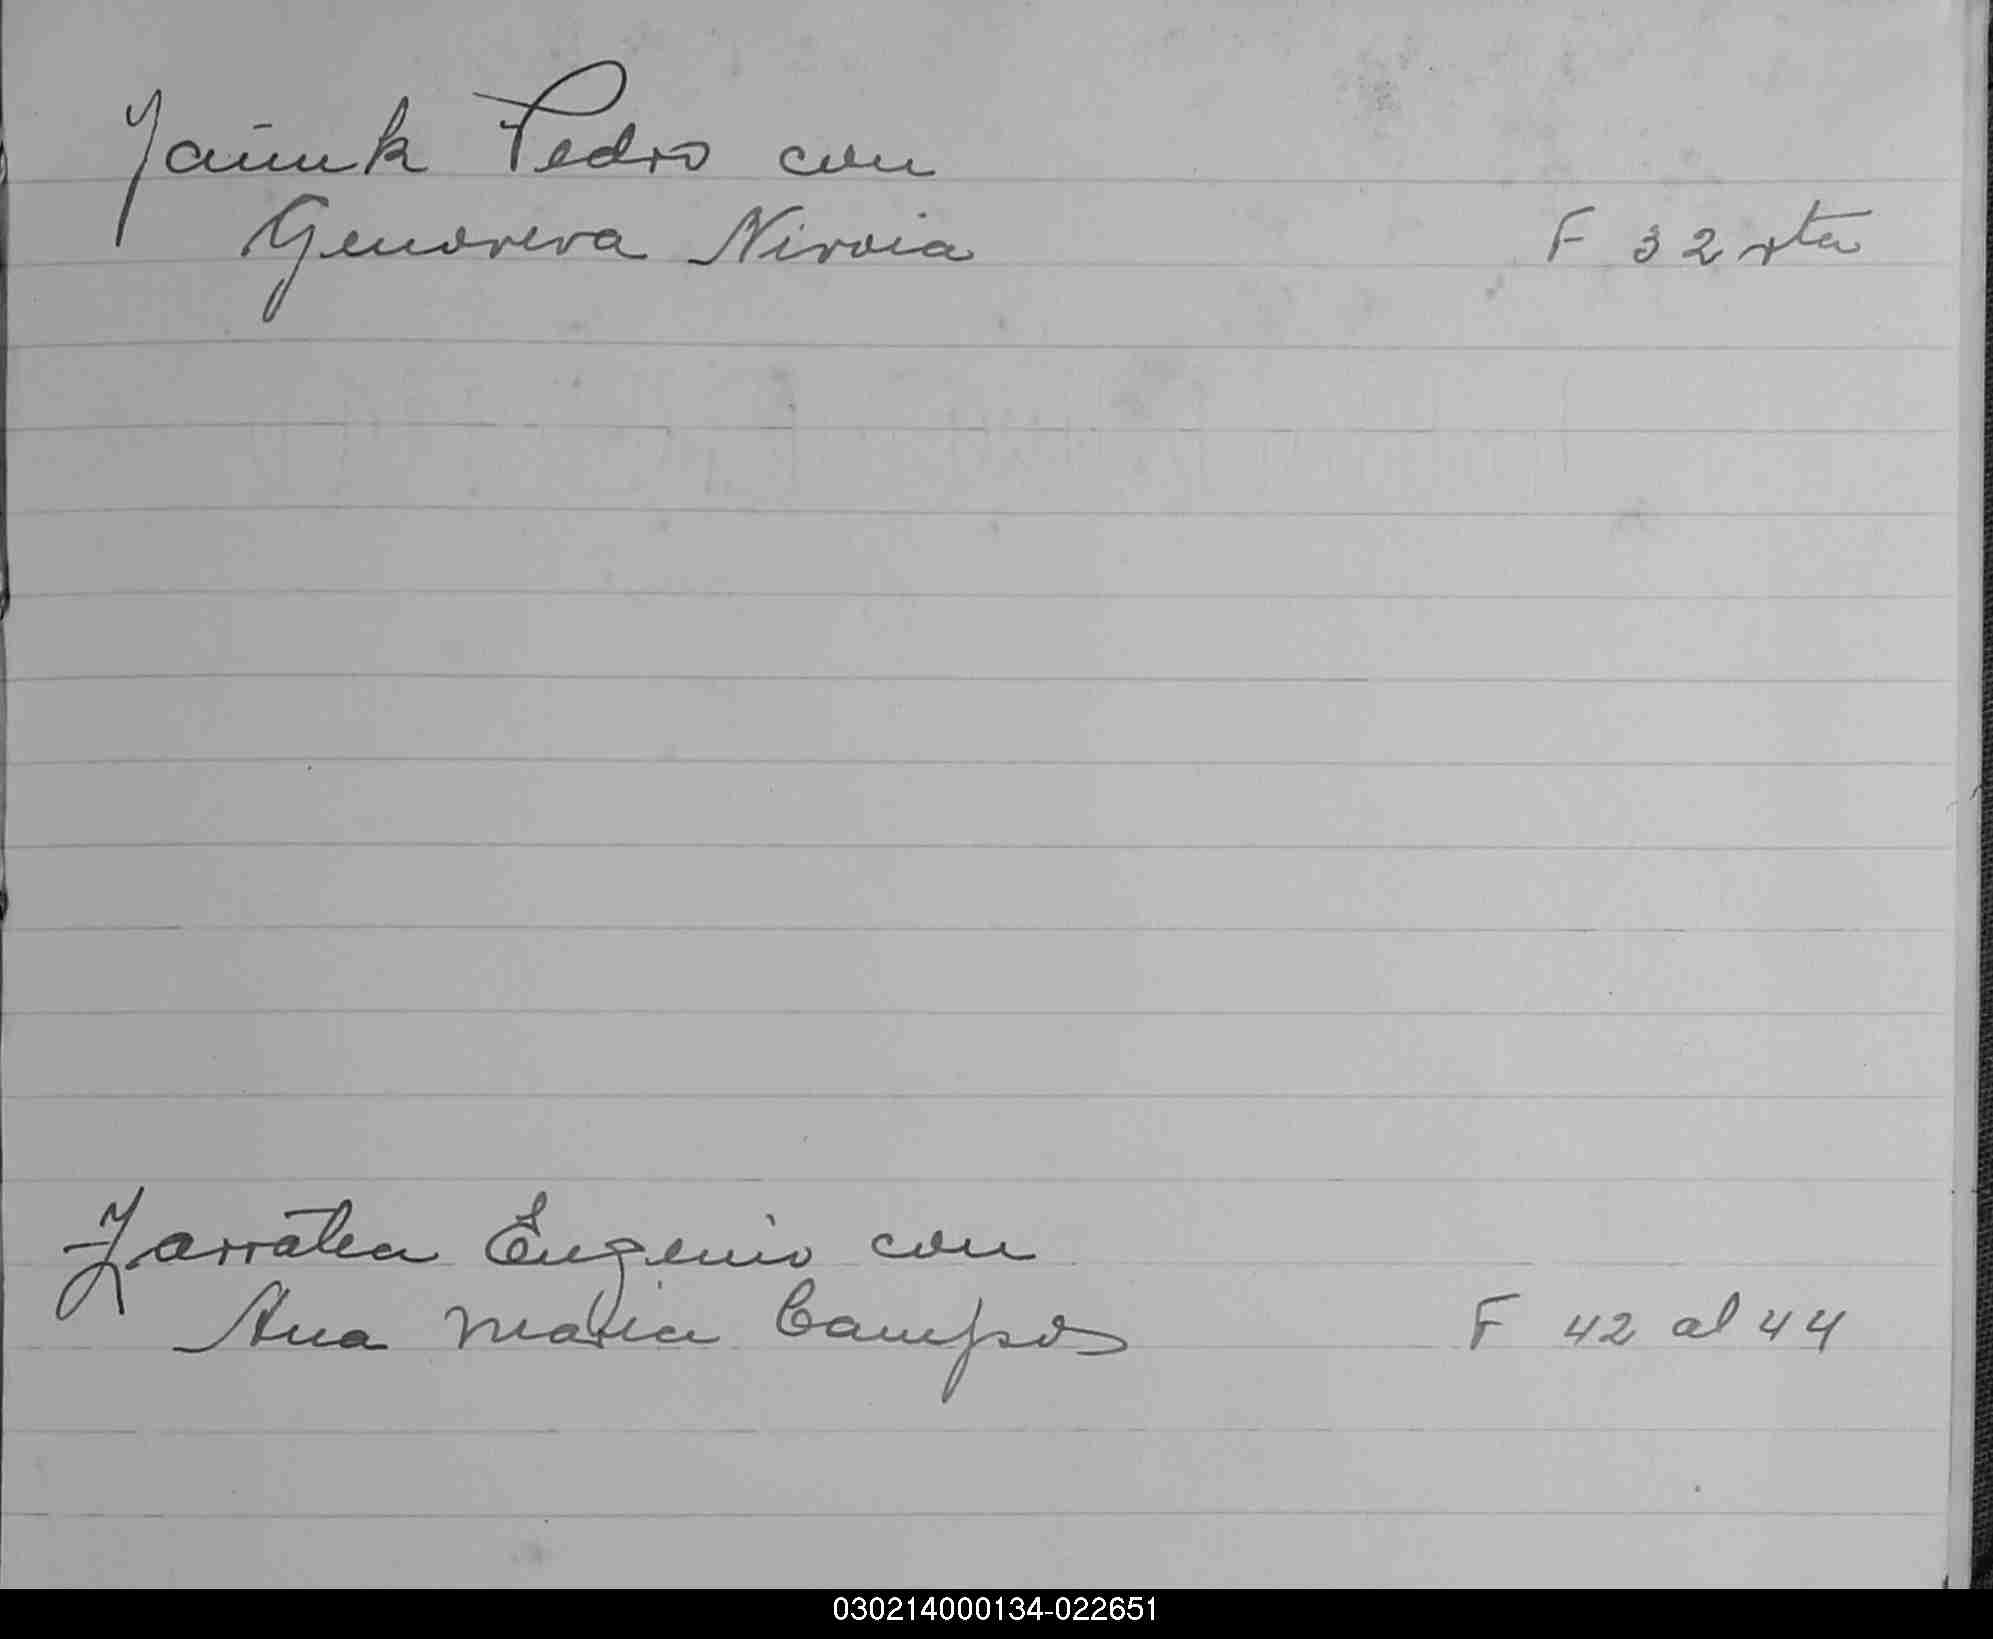 Pedro con
Genoveva Nirvia F 32 vta
Zarratea Eugenio con
Ana Maria Campos F 42 al 44
030214000134-022651